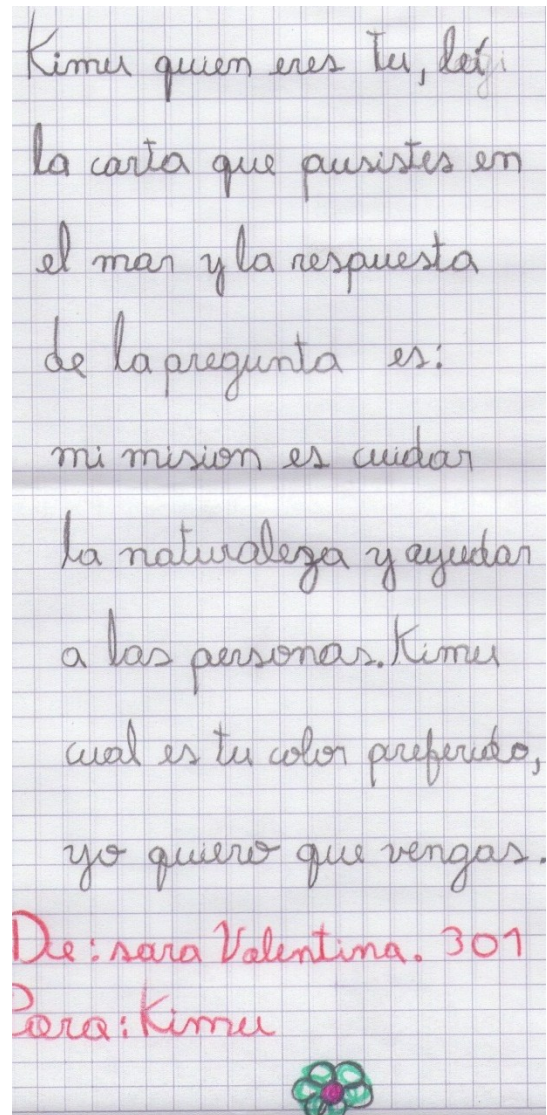 Kimu quien eres tu, leí
la carta que pusistes en
el mar y la respuesta
de la pregunta es:
mi mision es cuidar
la naturaleza y ayudar
a las personas. Kimu
cual es tu color preferido,
yo quiero que vengas.
De: sara Valentina. 301
Para: Kimu